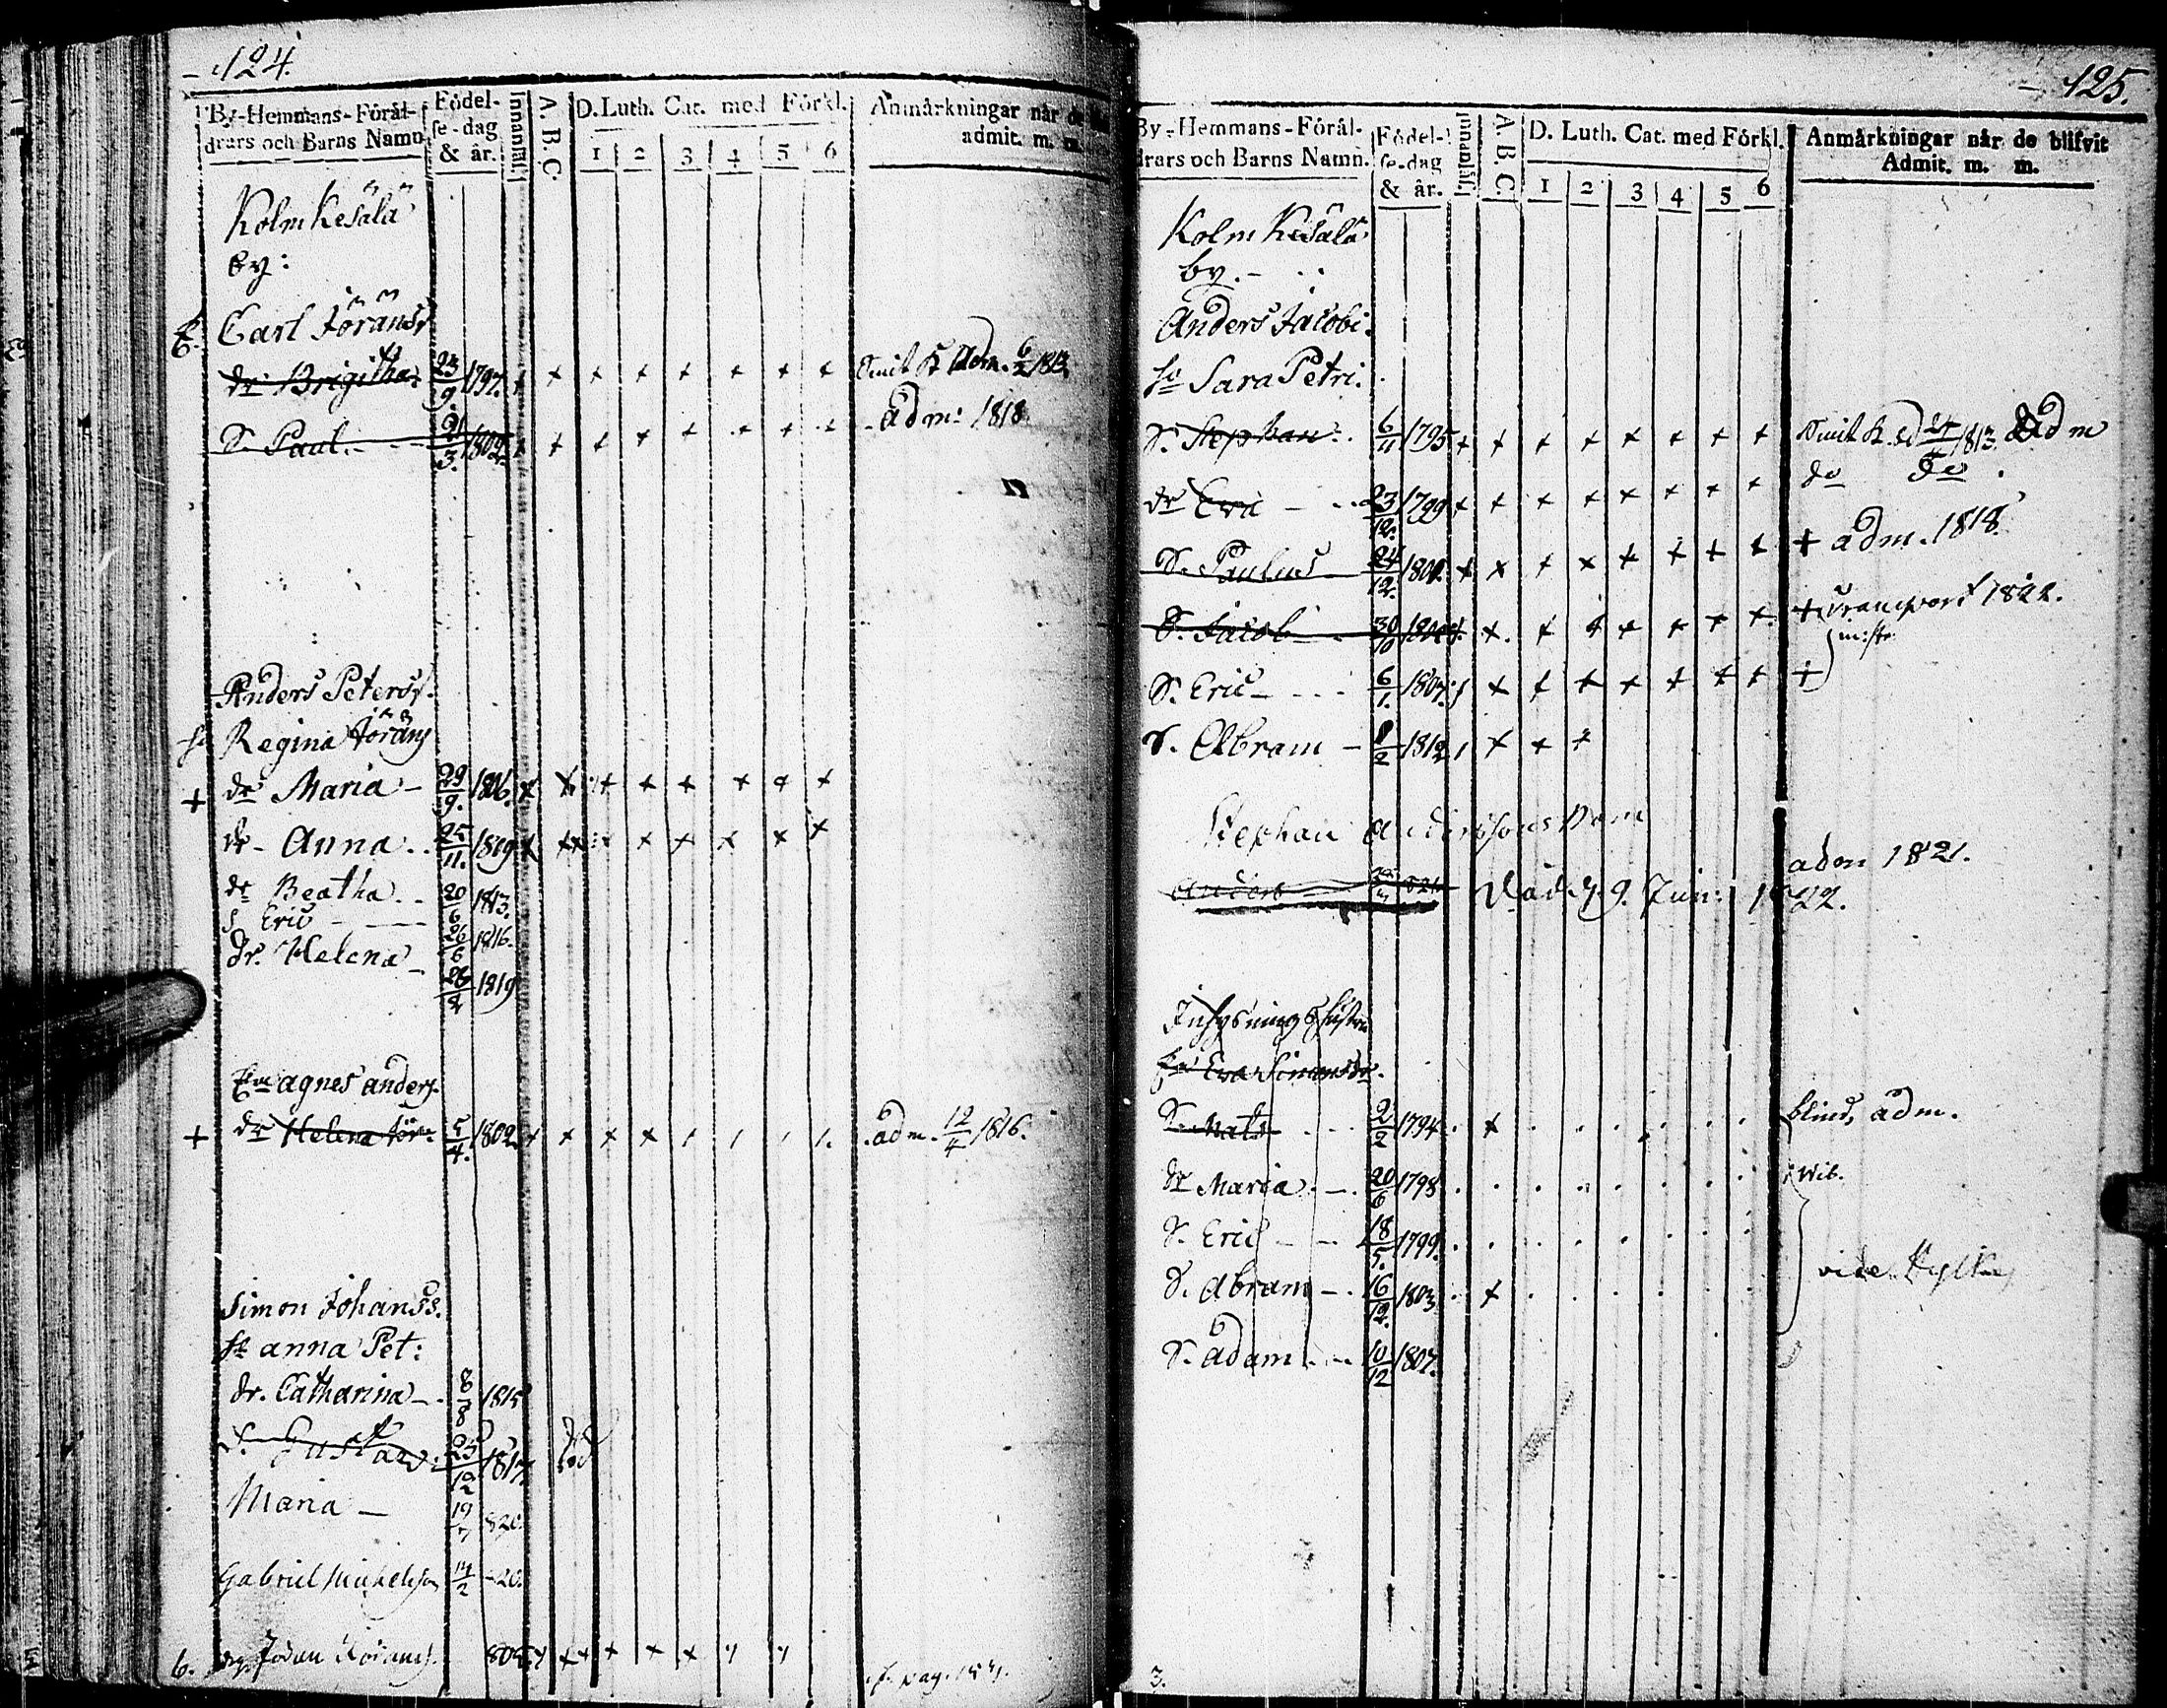 124.
By-Hemmans-Föräl-
drars och Barns Namn
Födel-
se-dag
& år.
Innanläs.
A. B. C
D. Luth. Cat. med Förkl.
1 2 3 4 5 6
Anmärkningar när de
admit. m. m.
Kolm Kesälä
by:
Carl Jöranss
dr Brigitha 23/9. 1797. Adm. 6/2 1813
S. Paul. 21/3. 1802 adm: 1818
Anders Peterss.
Regina Jörans
+ dr Maria 29/9. 1806.
dr Anna 25/11. 1809
dr Beatha 20/6 1813.
S Eric 26/6 1816.
dr. Helena 28/2 1819
Agnes Anders.
+ dr Helena Jör: 5/4. 1802 adm. 12/4 1816.
Simon Johanss.
h. Anna Pet:
dr. Catharina 8/8 1815
S. Gustav 25/12 1817 död
Maria 19/7 820.
Gabriel Michelsson 14/2 -20.
6. Jöran Jörans.
125.
By-Hemmans-Föräl-
drars och Barns Namn.
Födel-
se-dag
& år.
Innanläs.
A. B. C
D. Luth. Cat. med Förkl.
1 2 3 4 5 6
Anmärkningar när de blifvit
Admit. m. m.
Kolm Kesälä
by.
Anders Jacobi.
Sara Petri.
S. Stephan 6/11 1795 Adm
dr Eva 23/12. 1799 do do
S. Paulus 24/12. + adm. 1818.
S. Jacob 30/10 + transport 1822.
S. Eric 6/1. 1807. +
S. Abram 8/2 1812
Stephan Anderssons barn
adm 1821.
Anders Död d. 9. Jun: 1822.
Inhysnings
Eva Simonsdr.
S. Mats 2/2 1794 blind, adm.
dr Maria 20/6 1798 Wib.
S. Eric 18/5. 1799.
S. Abram 16/12. 1803 vide
S. Adam 10/12 1807.
3.